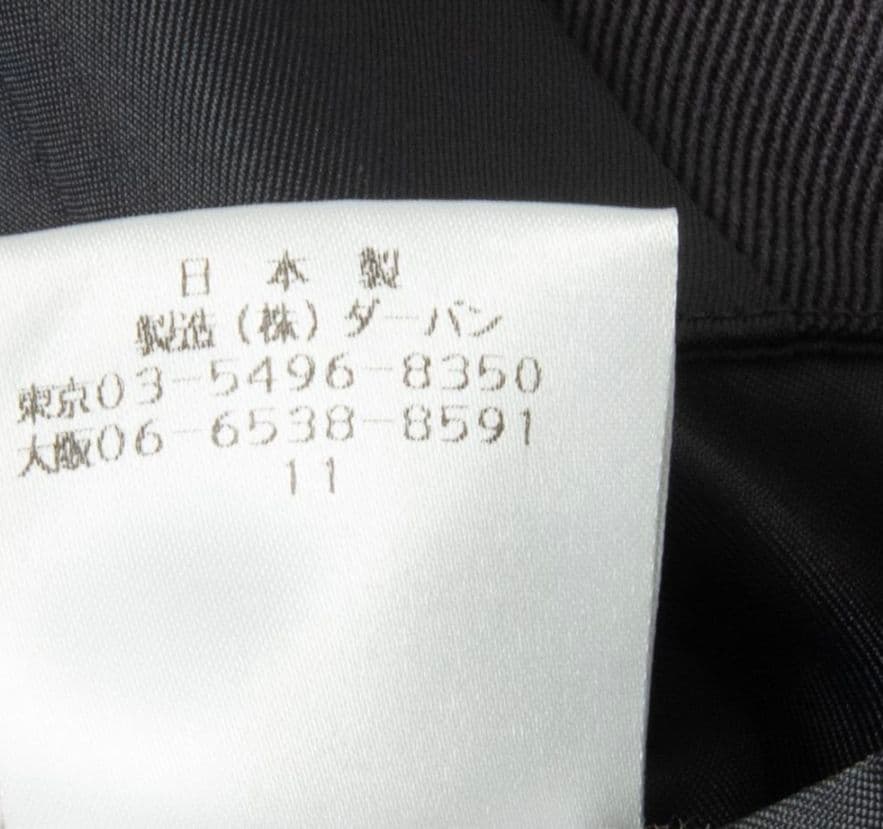 日本製
製造(株)ダーバン
東京03-5496-8350
大阪06-6538-8591
11